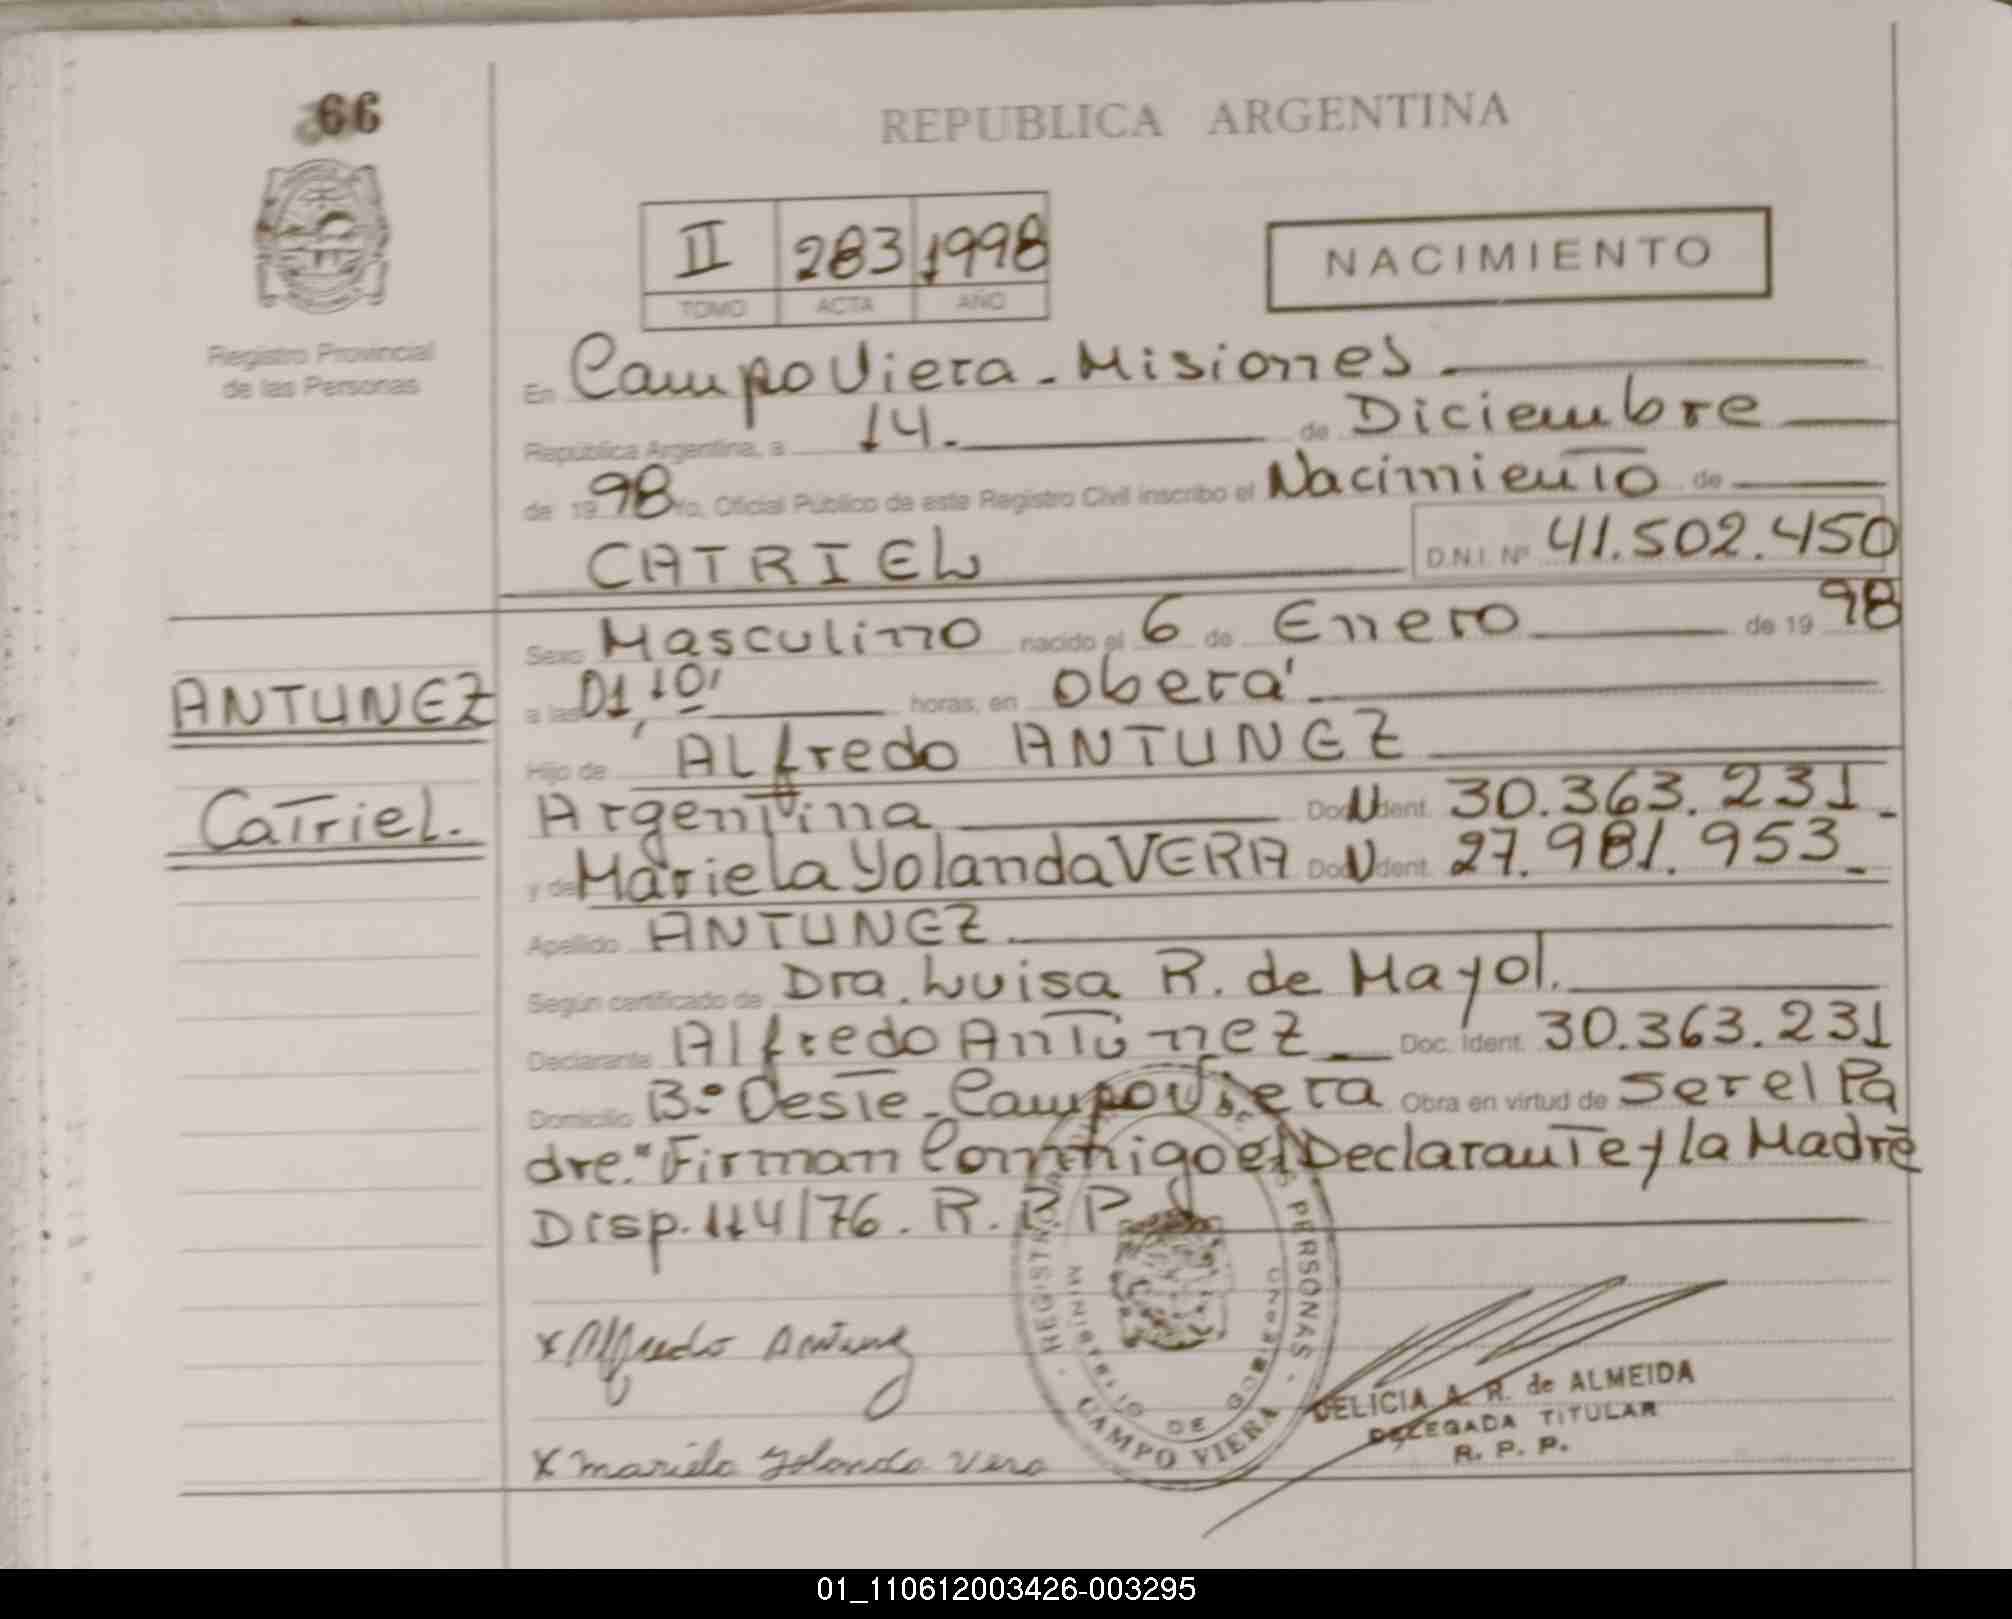 66
REPUBLICA ARGENTINA
II 283 1998
TOMO ACTA AÑO
NACIMIENTO
Registro Provincial
de las Personas
En Campo Viera - Misiones
República Argentina, a 14. de Diciembre
de 1998 Yo, Oficial Público de este Registro Civil inscribo el Nacimiento de
CATRIEL D.N.I. Nº 41.502.450
Sexo Masculino nacido el 6 de Enero de 1998
ANTUNEZ
a las 01,10' horas, en Oberá
Hijo de Alfredo ANTUNEZ
Catriel.
Argentina Doc. N Ident. 30.363.231
y de Mariela Yolanda VERA Doc. N Ident. 27.981.953
Apellido ANTUNEZ
Según certificado de Dra. Luisa R. de Mayol.
Declarante Alfredo Antúnez Doc. Ident. 30.363.231
Domicilio Bº Oeste - Campo Viera Obra en virtud de ser el Pa
dre." Firman Conmigo el Declarante y la Madre
Disp. 114/76. R. P. P
x Alfredo Antunez
x Mariela Yolanda Vera
REGISTRO PERSONAS - CAMPO VIERA
MINISTERIO DE GOBIERNO
DELICIA A. R. de ALMEIDA
DELEGADA TITULAR
R. P. P.
01_110612003426-003295